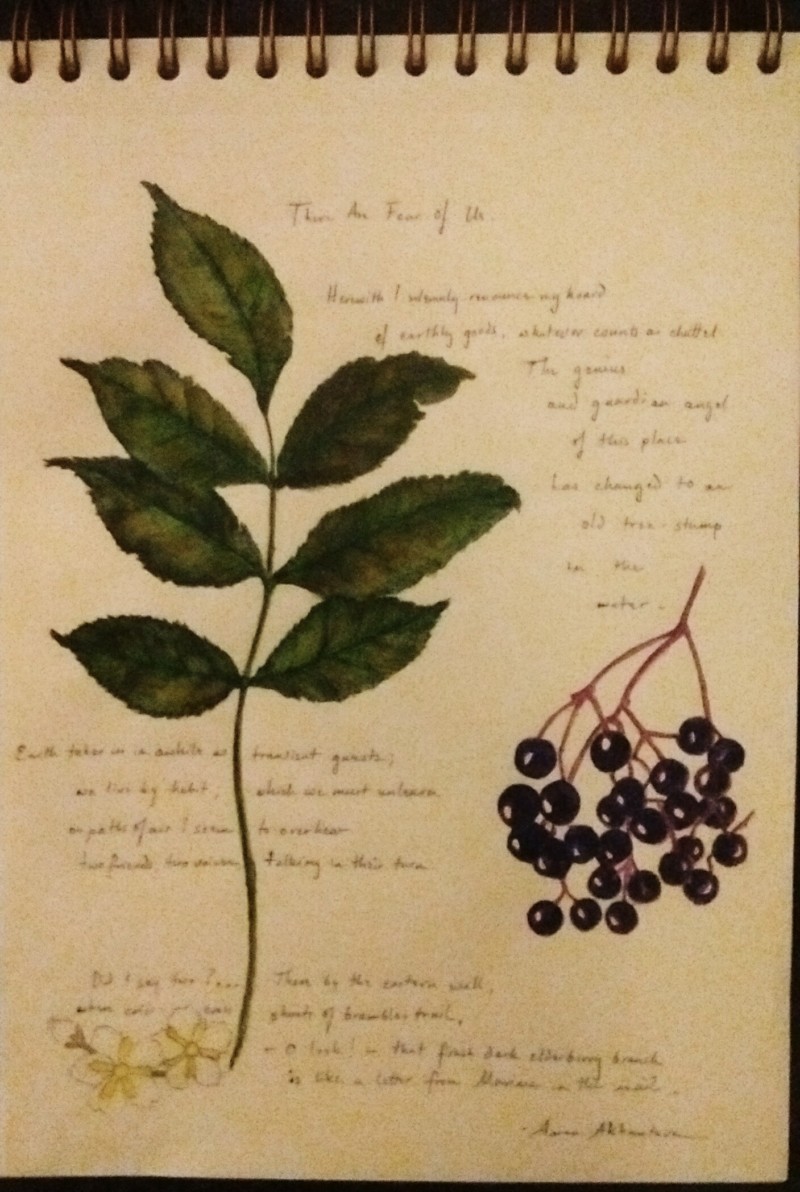 There Are Four of Us
Herewith I solemnly renounce my hoard
of earthly goods, whatever counts as chattel.
The genius
and guardian angel
of this place
has changed to an
old tree-stump
in the
water.
Earth takes us in awhile as transient guests;
we live by habit, which we must unlearn.
on paths of air I seem to overhear
two friends, two voices talking in their turn.
Did I say two?... There by the eastern wall,
where shoots of brambles trail,
- O look! - that fresh dark elderberry branch
is like a letter from Marina in the mail.
- Anna Akhmatova